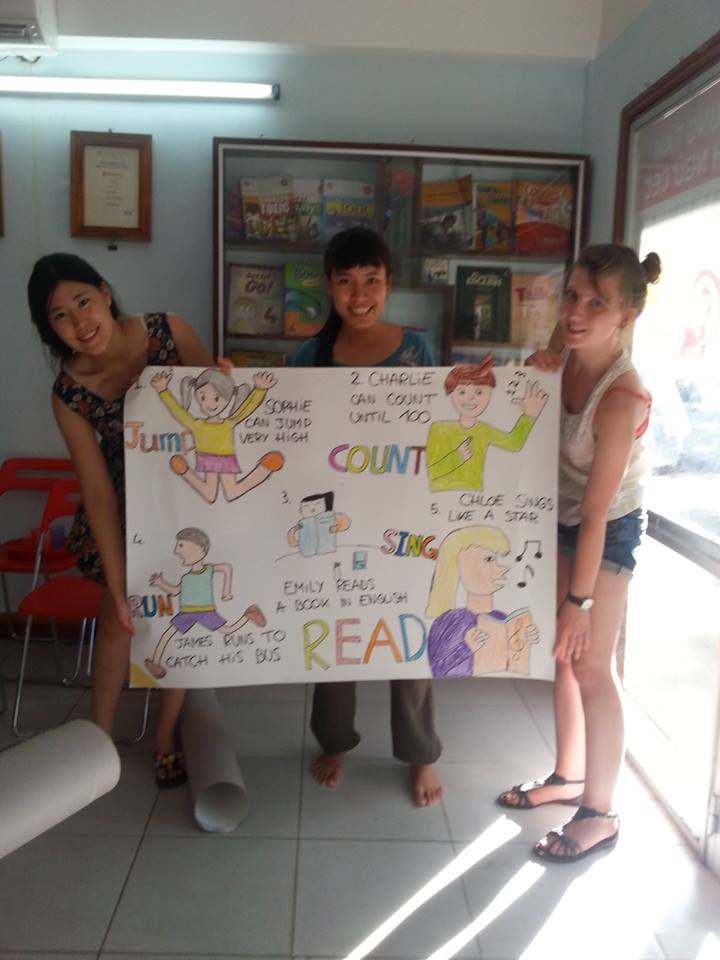 1.
Jump
SOPHIE
CAN JUMP
VERY HIGH
2. CHARLIE
CAN COUNT
UNTIL 100
COUNT
1 2 3
3.
EMILY READS
A BOOK IN ENGLISH
READ
4.
RUN
JAMES RUNS TO
CATCH HIS BUS
5.
CHLOE SINGS
LIKE A STAR
SING
TOEIC
TOEIC
Go!
4
ENGLISH